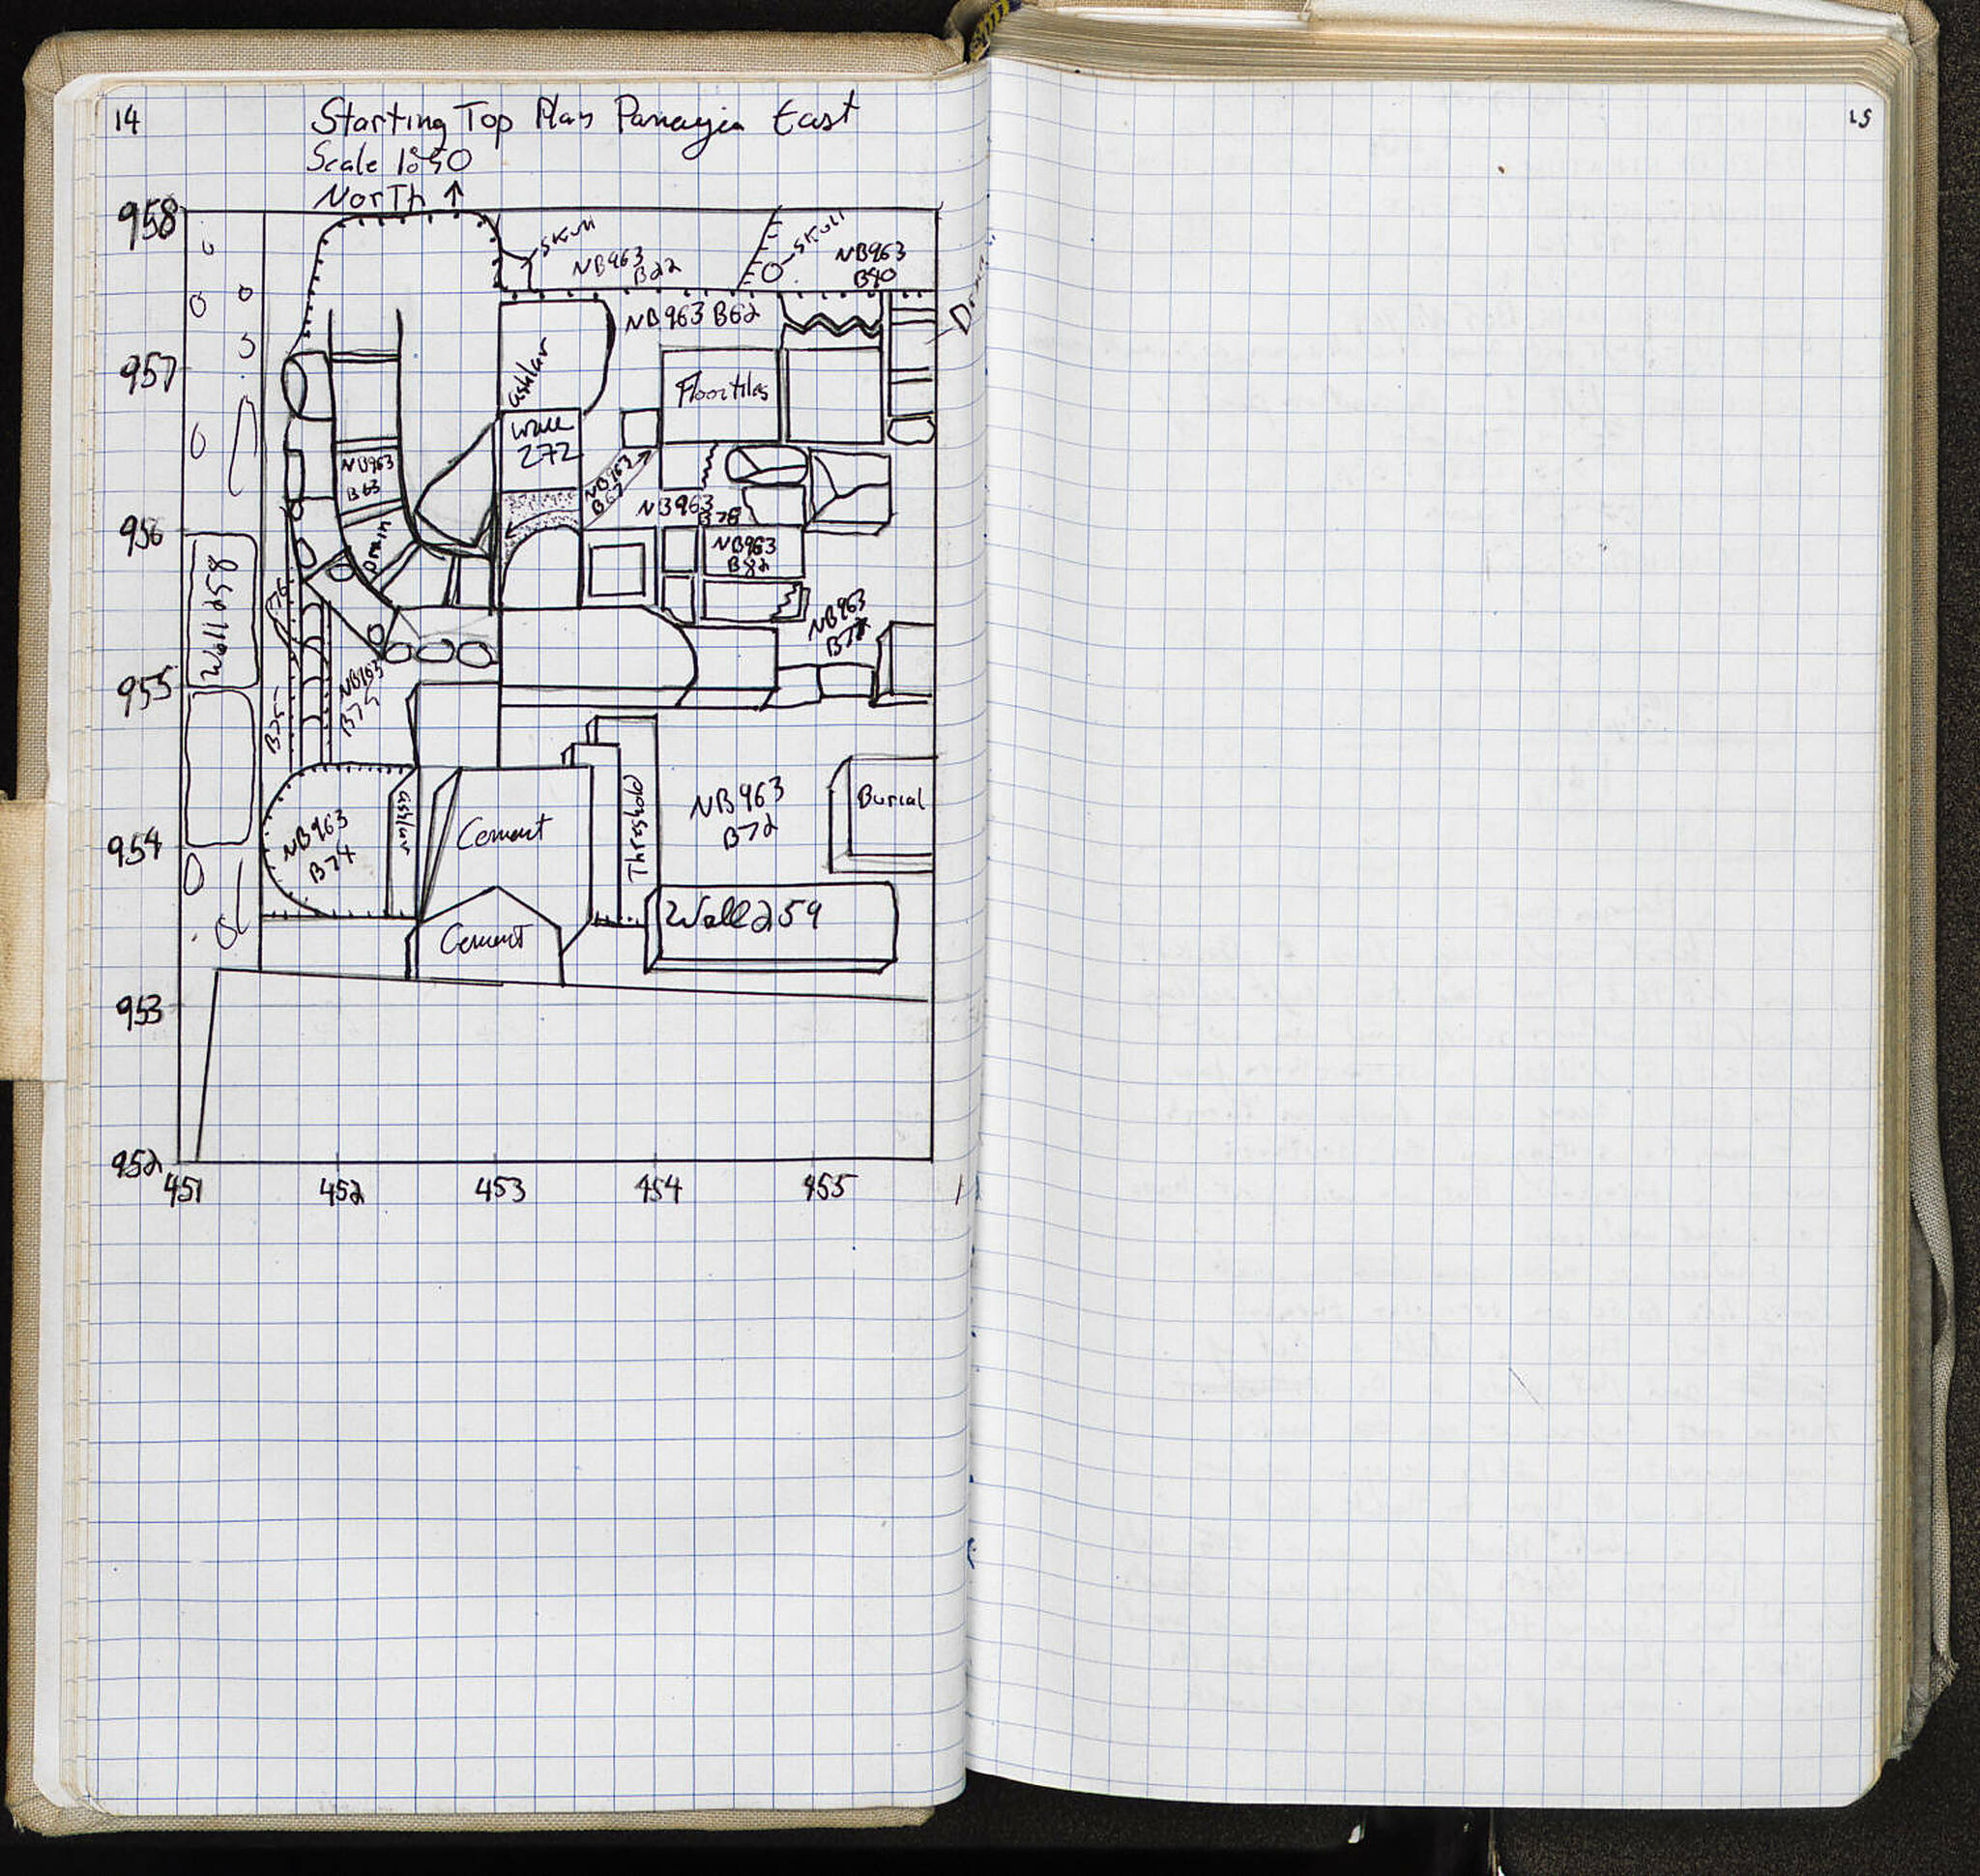 14
Starting Top Plan Panayia East
Scale 1:50
North ↑
15
958
skull
NB963
B22
skull
NB963
B90
NB963 B62
957
ashlar
Floor tiles
Wall
272
NB963
B63
NB963
B67
NB963
B78
956
Drain
NB963
B82
Wall 258
NB963
955
NB963
B75
NB963
B74
ashlar
Cement
Threshold
NB963
B72
Burial
954
Wall 259
Cement
953
952
451 452 453 454 455